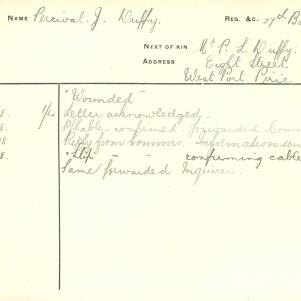 NAME Percival. J. Duffy. REG. &C. 27th B
NEXT OF KIN Mr P. L. Duffy.
ADDRESS Eight Street.
West Port Pirie
"Wounded"
8. Letter acknowledged.
8. P/Cable confirmed. Forwarded Comm
8 Reply from Commrs. Information sen
8. "Slip" " " confirming cable
Same forwarded Inquirer.